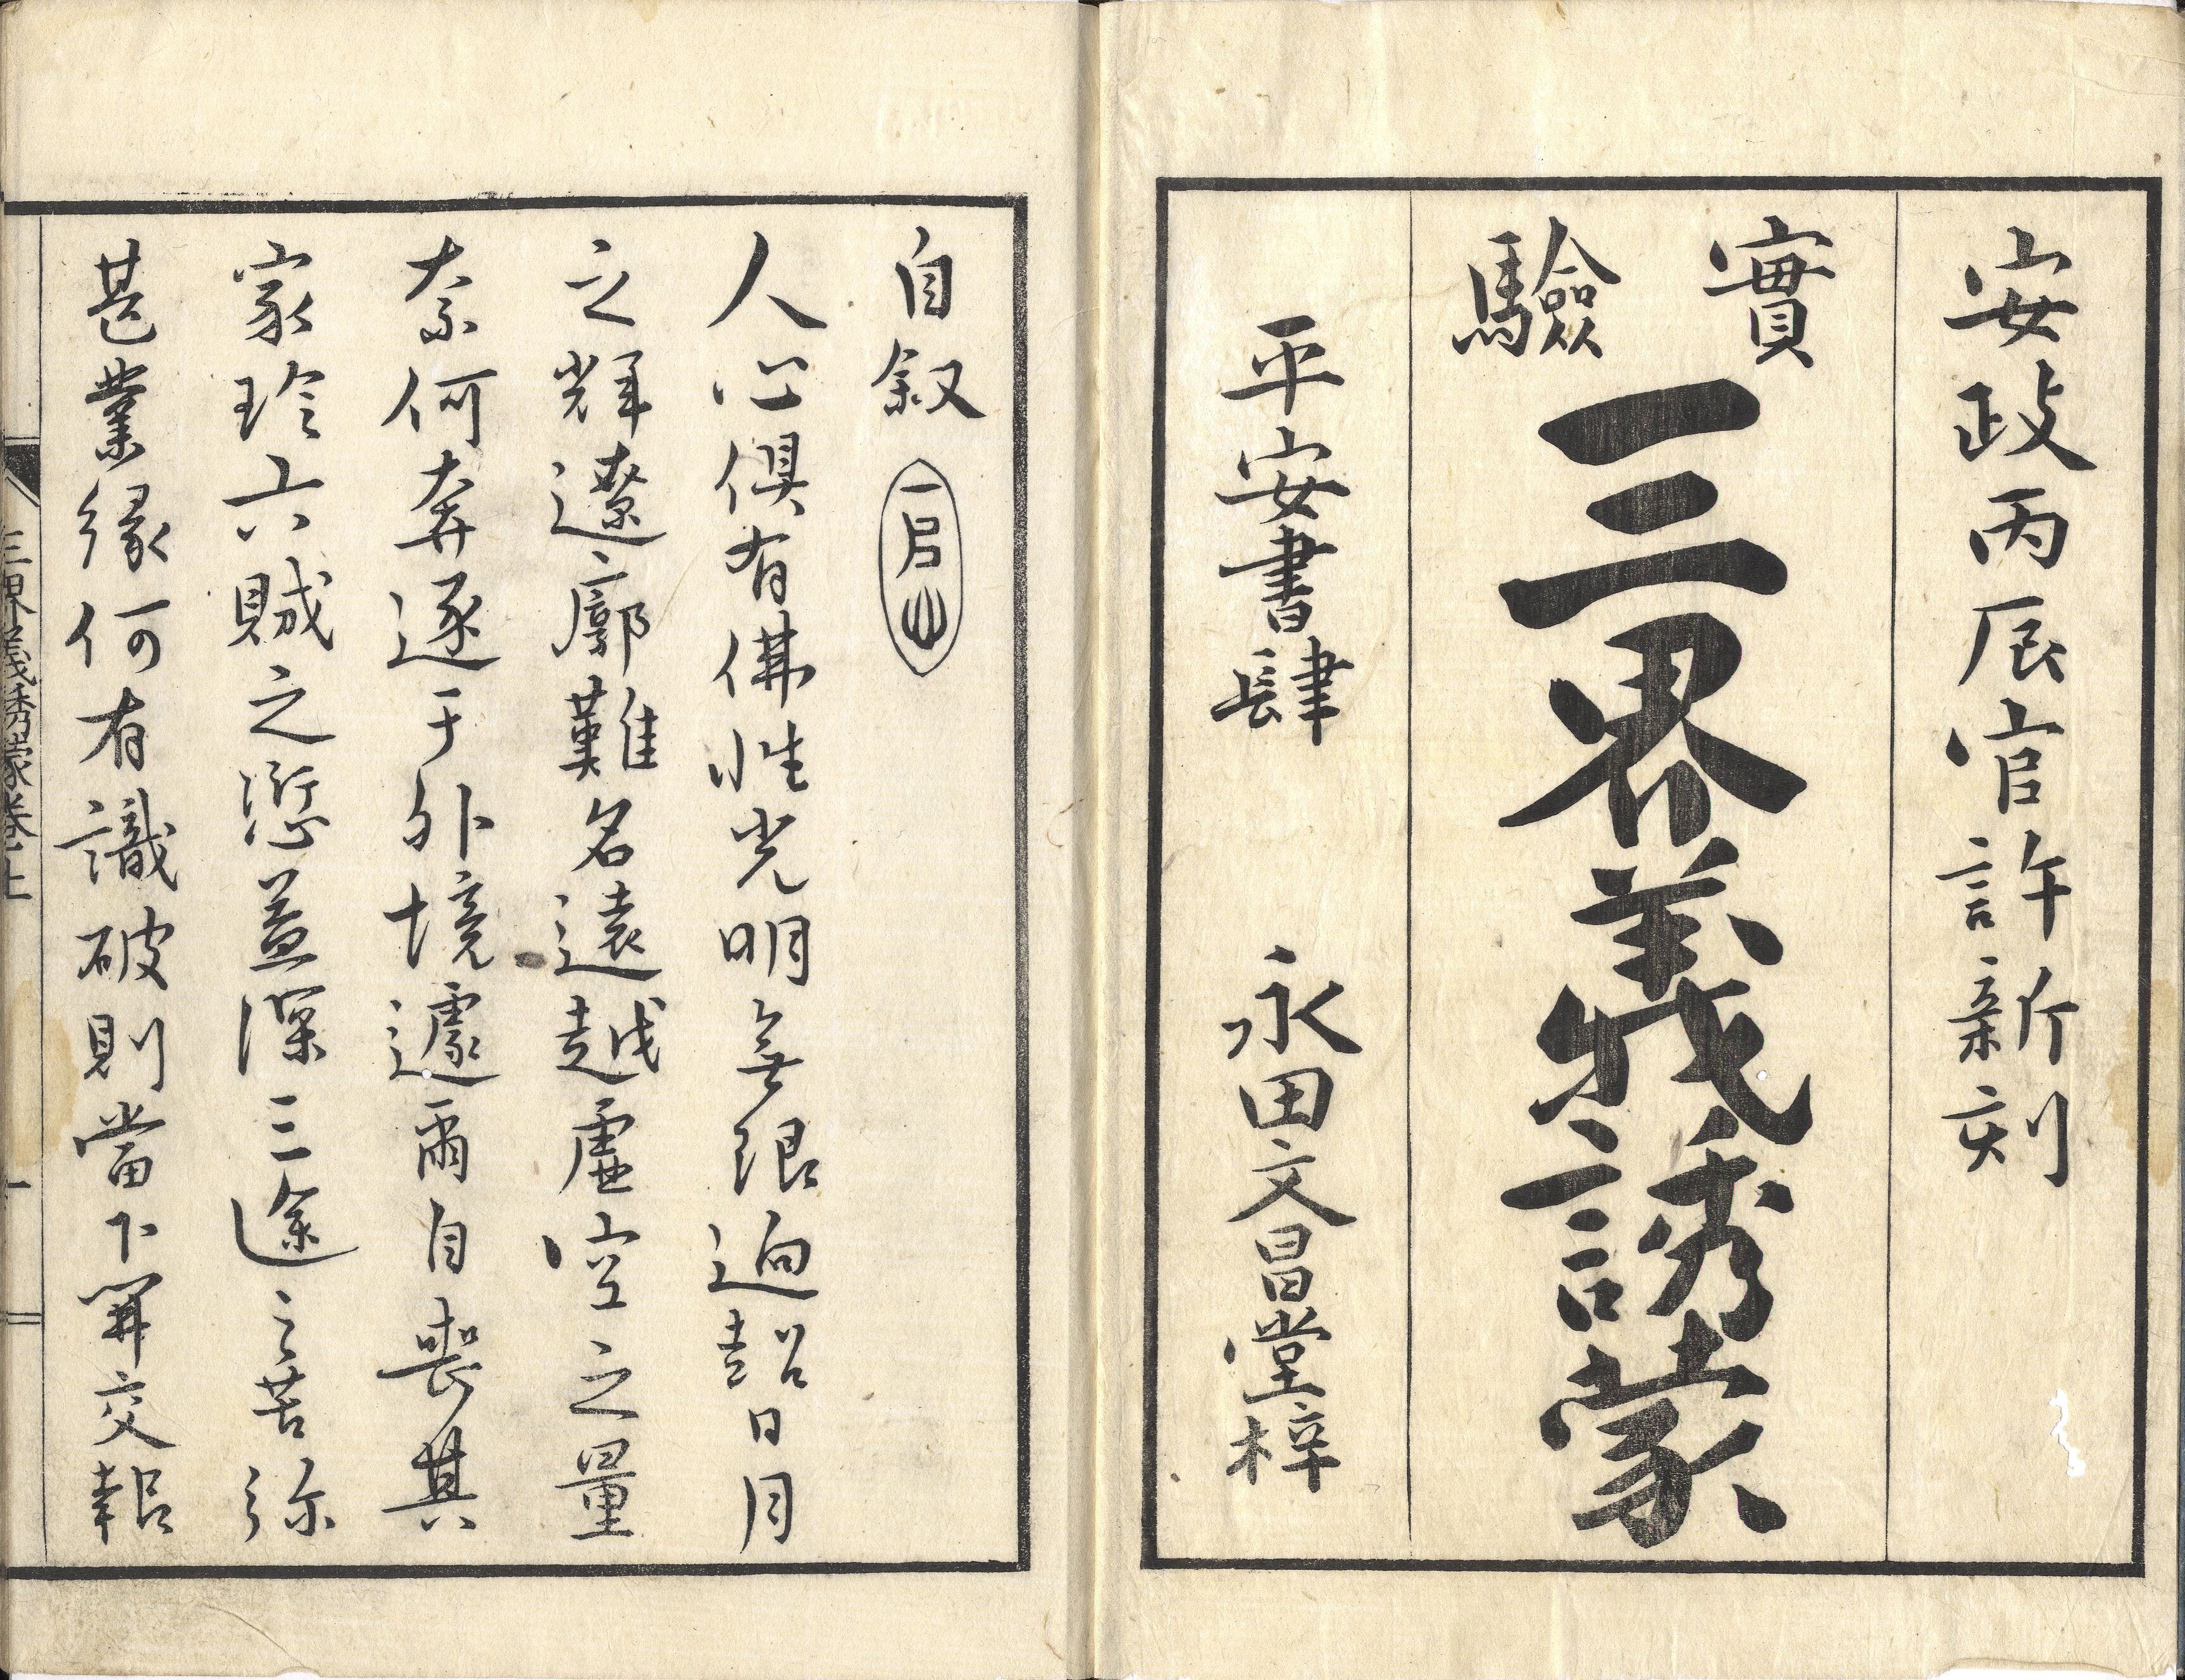 安政丙辰官許新刻
實驗
三界義誘蒙
平安書肆 永田文昌堂梓
自叙
人心倶有佛性光明無限迫日月
之輝遼廓難名遠越虚空之量
柰何奔逐于外境遽爾自喪其
家珍六賊之愆益深三途之苦弥
甚業縁何有識破則當下罪交報
三界義誘蒙卷上
一